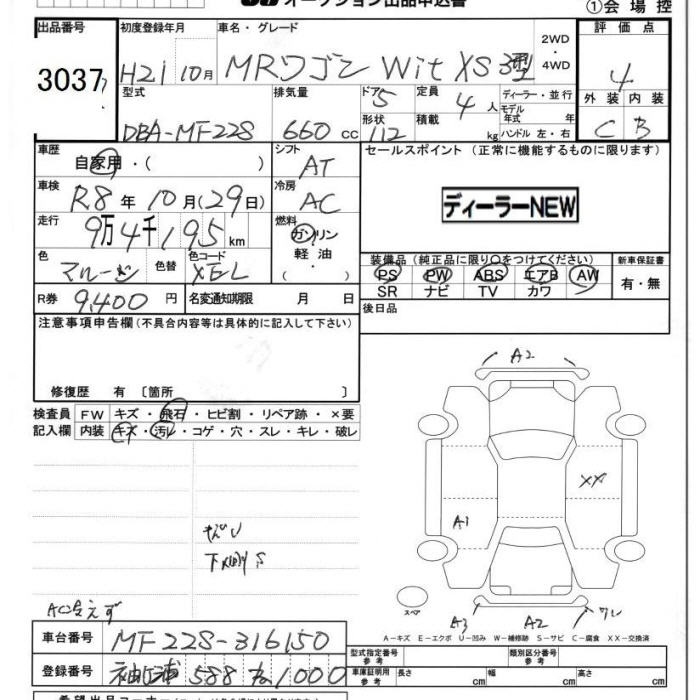 オークション出品申込書
①会場控
出品番号 3037
初度登録年月 H21 10月
車名・グレード MRワゴン Wit XS 3型
2WD・4WD
評価点 4
外装 内装
C B
型式 DBA-MF22S
排気量 660 cc
ドア 5
形状 112
定員 4 人
積載 kg
ディーラー・並行
モデル年式 年
ハンドル 左・右
車歴 自家用・( )
シフト AT
セールスポイント (正常に機能するものに限ります)
ディーラーNEW
車検 R8年10月(29日)
冷房 AC
走行 9万4千195km
燃料 ガソリン 軽油
色 マルーン 色替
色コード XEL
装備品(純正品に限り○をつけてください)
PS PW ABS エアB AW
SR ナビ TV カワ
新車保証書
有・無
R券 9,400 円
名変通知期限 月 日
後日品
注意事項申告欄(不具合内容等は具体的に記入して下さい)
修復歴 有 〔箇所 〕
検査員記入欄
FW キズ・飛石・ヒビ割・リペア跡・×要
内装 キズ・汚レ・コゲ・穴・スレ・キレ・破レ
A2
XX
A1
サビ
下廻りS
スペア
A3 A2 ワレ
A-キズ E-エクボ U-凹み W-補修跡 S-サビ C-腐食 XX-交換済
車台番号 MF22S-316150
登録番号 袖ヶ浦 588 1000
型式指定番号 参考
類別区分番号 参考
車庫証明用 参考 長さ 幅 高さ